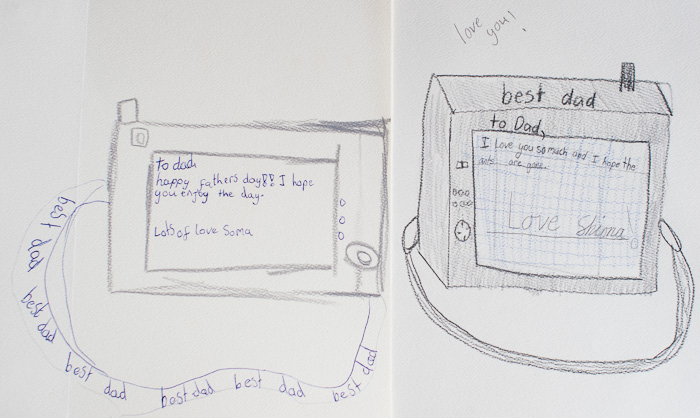 to dad
happy fathers day!! I hope
you enjoy the day.
Lots of love Soma
best dad
best dad
best dad
best dad
best dad
best dad
love you!
best dad
to Dad,
I Love you so much and I hope the
are gone.
Love Shima